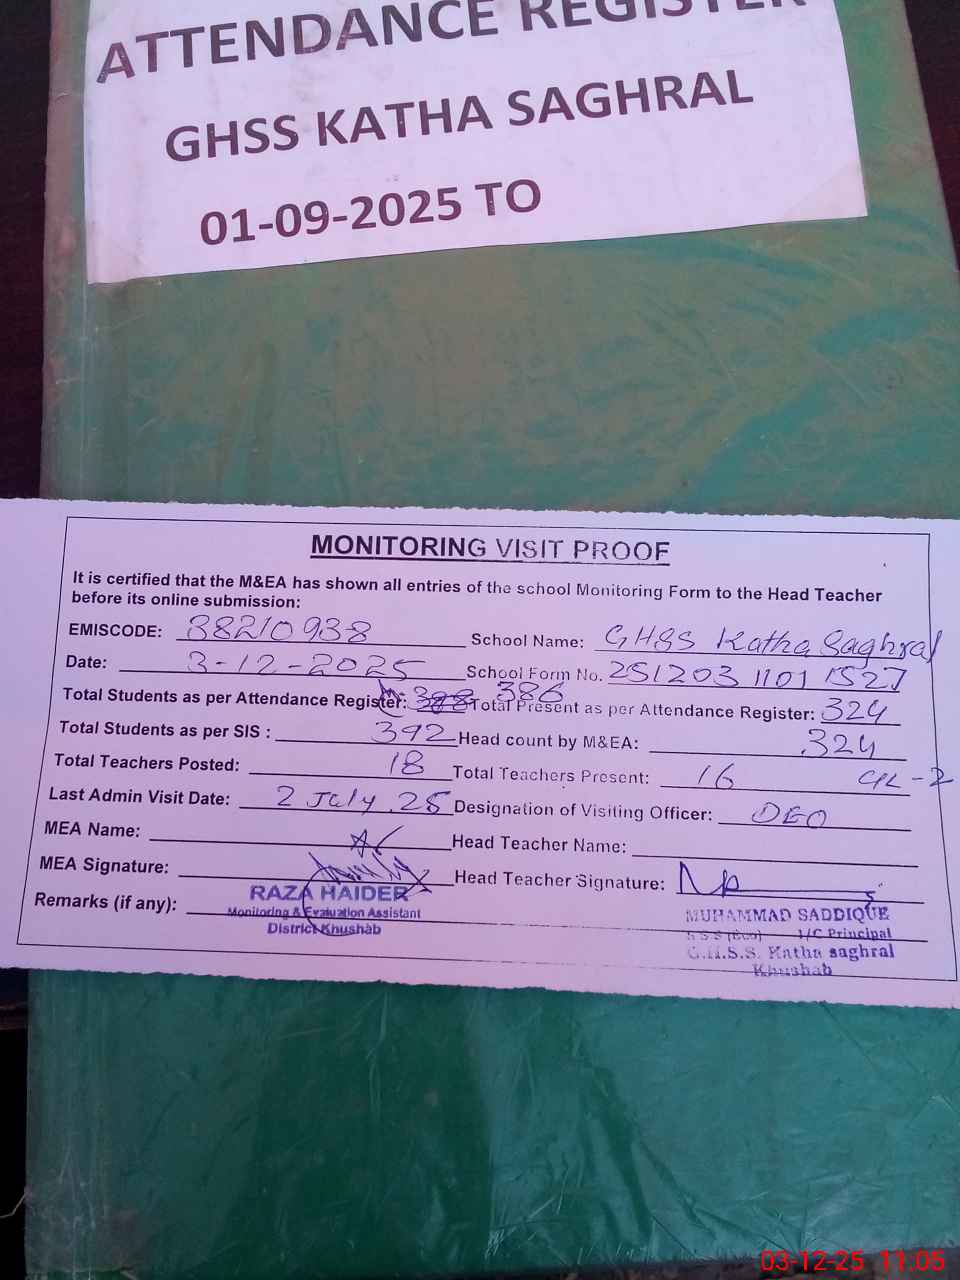 ATTENDANCE REGISTER
GHSS KATHA SAGHRAL
01-09-2025 TO
MONITORING VISIT PROOF
It is certified that the M&EA has shown all entries of the school Monitoring Form to the Head Teacher
before its online submission:
EMISCODE: 38210938 School Name: GHSS Katha Saghral
Date: 3-12-2025 School Form No. 251203 1101 1527
Total Students as per Attendance Register: 386 Total Present as per Attendance Register: 324
Total Students as per SIS : 392 Head count by M&EA: 324
Total Teachers Posted: 18 Total Teachers Present: 16
Last Admin Visit Date: 2 July 25 Designation of Visiting Officer: DEO
MEA Name: Head Teacher Name:
MEA Signature: Head Teacher Signature:
RAZA HAIDER MUHAMMAD SADDIQUE
Remarks (if any): Monitoring & Evaluation Assistant S.S.S (Eco) I/C Principal
District Khushab G.H.S.S. Katha saghral
Khushab
03-12-25 11:05